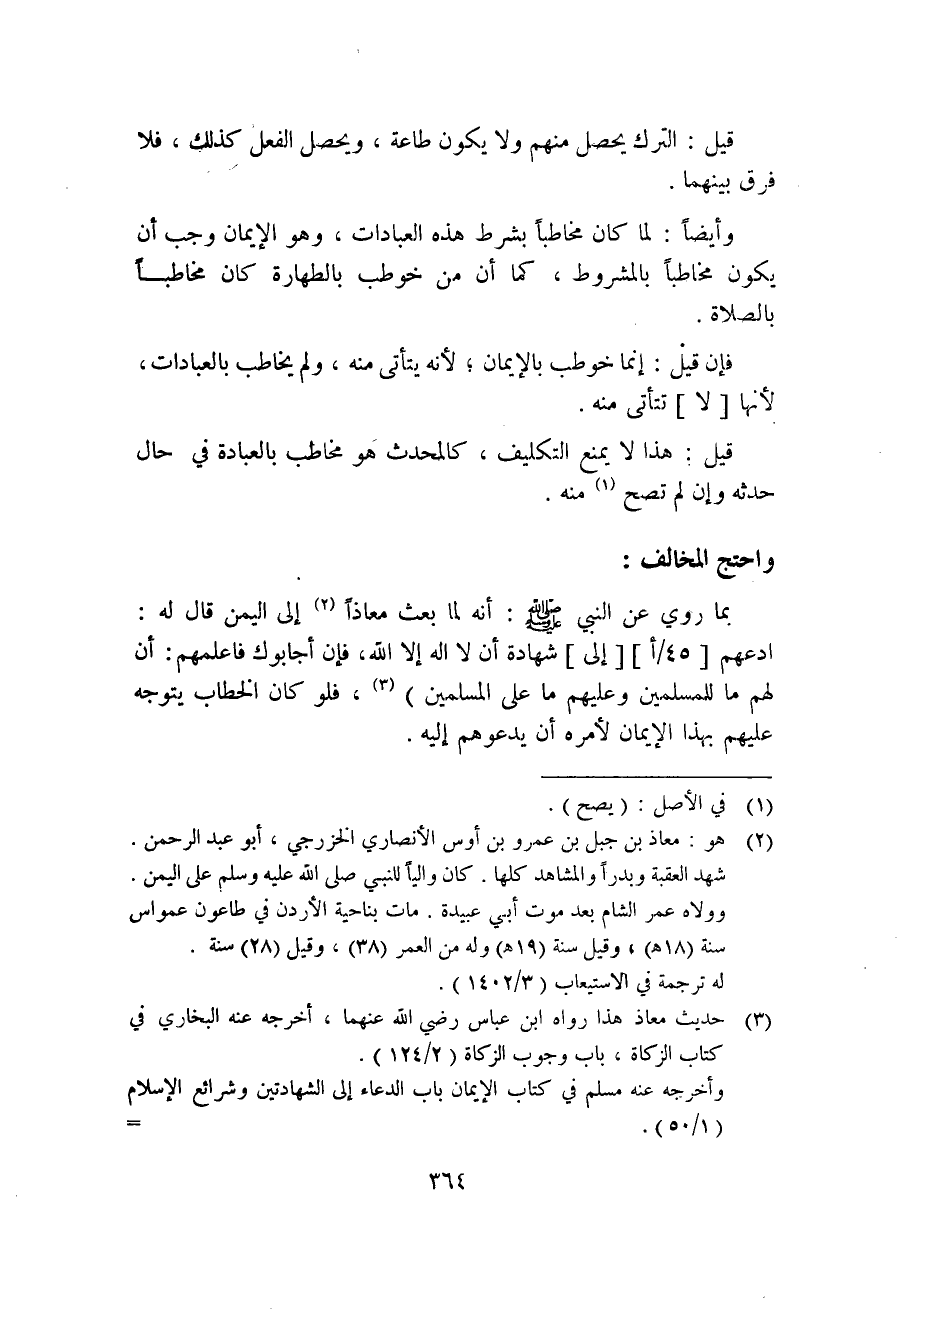 قيل : الترك يحصل منهم ولا يكون طاعة ، ويحصل الفعل كذلك ، فلا
فرق بينهما .
وأيضاً : لما كان مخاطباً بشرط هذه العبادات ، وهو الإيمان وجب أن
يكون مخاطباً بالمشروط ، كما أن من خوطب بالطهارة كان مخاطبــاً
بالصلاة .
فإن قيل : إنما خوطب بالإيمان ؛ لأنه يتأتى منه ، ولم يخاطب بالعبادات ،
لأنها [ لا ] تتأتى منه .
قيل : هذا لا يمنع التكليف ، كالمحدث هو مخاطب بالعبادة في حال
حدثه وإن لم تصح (١) منه .
واحتج المخالف :
بما روي عن النبي ﷺ : أنه لما بعث معاذاً (٢) إلى اليمن قال له :
ادعهم [ ٤٥/أ ] [ إلى ] شهادة أن لا اله إلا الله، فإن أجابوك فاعلمهم : أن
لهم ما للمسلمين وعليهم ما على المسلمين ) (٣) ، فلو كان الخطاب يتوجه
عليهم بهذا الإيمان لأمره أن يدعوهم إليه .
(١) في الأصل : ( يصح ) .
(٢) هو : معاذ بن جبل بن عمرو بن أوس الأنصاري الخزرجي ، أبو عبد الرحمن .
شهد العقبة وبدراً والمشاهد كلها . كان والياً للنبي صلى الله عليه وسلم على اليمن .
وولاه عمر الشام بعد موت أبي عبيدة . مات بناحية الأردن في طاعون عمواس
سنة (١٨ه) ، وقيل سنة (١٩ه) وله من العمر (٣٨) ، وقيل (٢٨) سنة .
له ترجمة في الاستيعاب ( ١٤٠٢/٣ ) .
(٣) حديث معاذ هذا رواه ابن عباس رضي الله عنهما ، أخرجه عنه البخاري في
كتاب الزكاة ، باب وجوب الزكاة ( ١٢٤/٢ ) .
وأخرجه عنه مسلم في كتاب الإيمان باب الدعاء إلى الشهادتين وشرائع الإسلام
( ٥٠/١ ) . =
٣٦٤